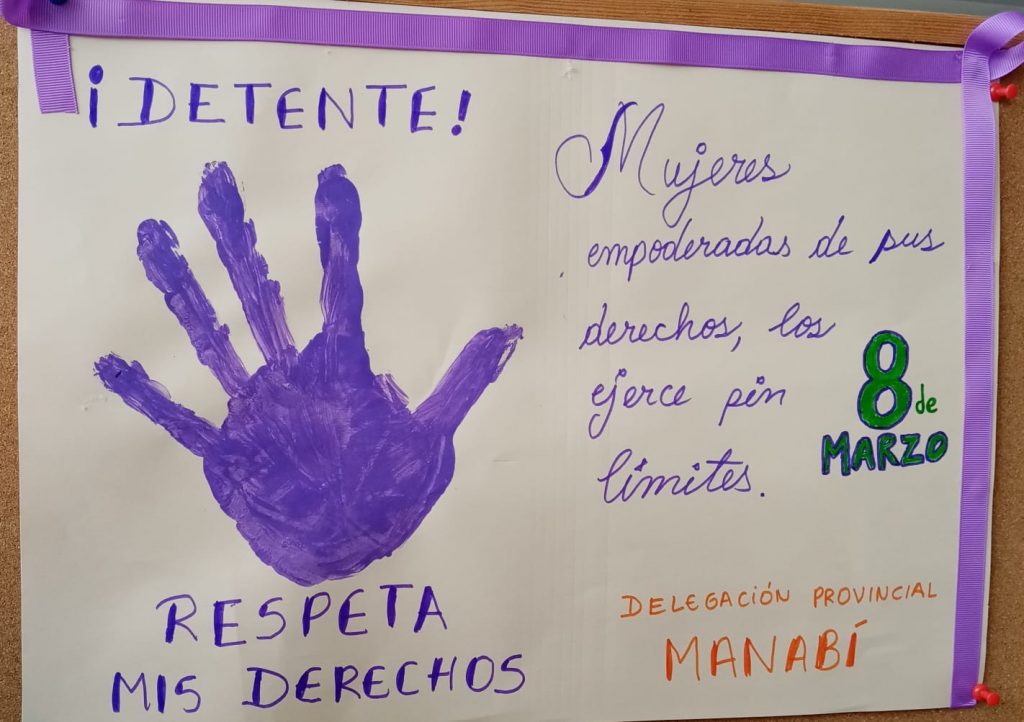 ¡DETENTE!
RESPETA
MIS DERECHOS
Mujeres
empoderadas de sus
derechos, los
ejerce sin
límites.
8 de
MARZO
DELEGACIÓN PROVINCIAL
MANABÍ